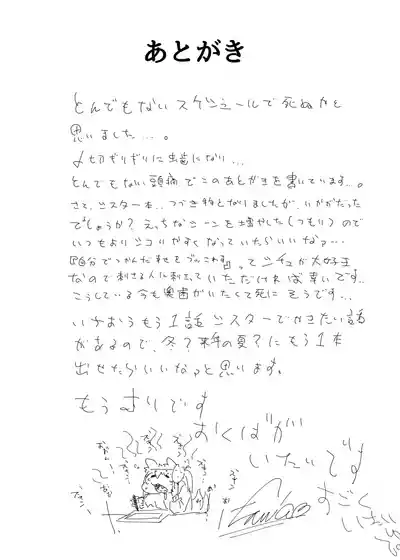 あとがき
とんでもないスケジュールで死ぬかと
思いました…。
〆切ぎりぎりに虫歯になり…
とんでもない頭痛でこのあとがきを書いています…。
さて、シスター本、つづき物となりましたが、いかがだった
でしょうか?えっちなシーンを増やした(つもり)ので
いつもよりシコいやすくなっていたらいいなぁ…
『自分でつかんだ幸せをぶっこわる』ってシチュが大好き
なので刺さる人に刺さっていただければ幸いです…
こうしている今も奥歯がいたくて死にそうです…
いちおうもう1話シスターでかきたい話
があるので、冬?来年の夏?にもう1本
出せたらいいなぁと思います。
もうむりです
おくばが
いたいです
すごく
いたい